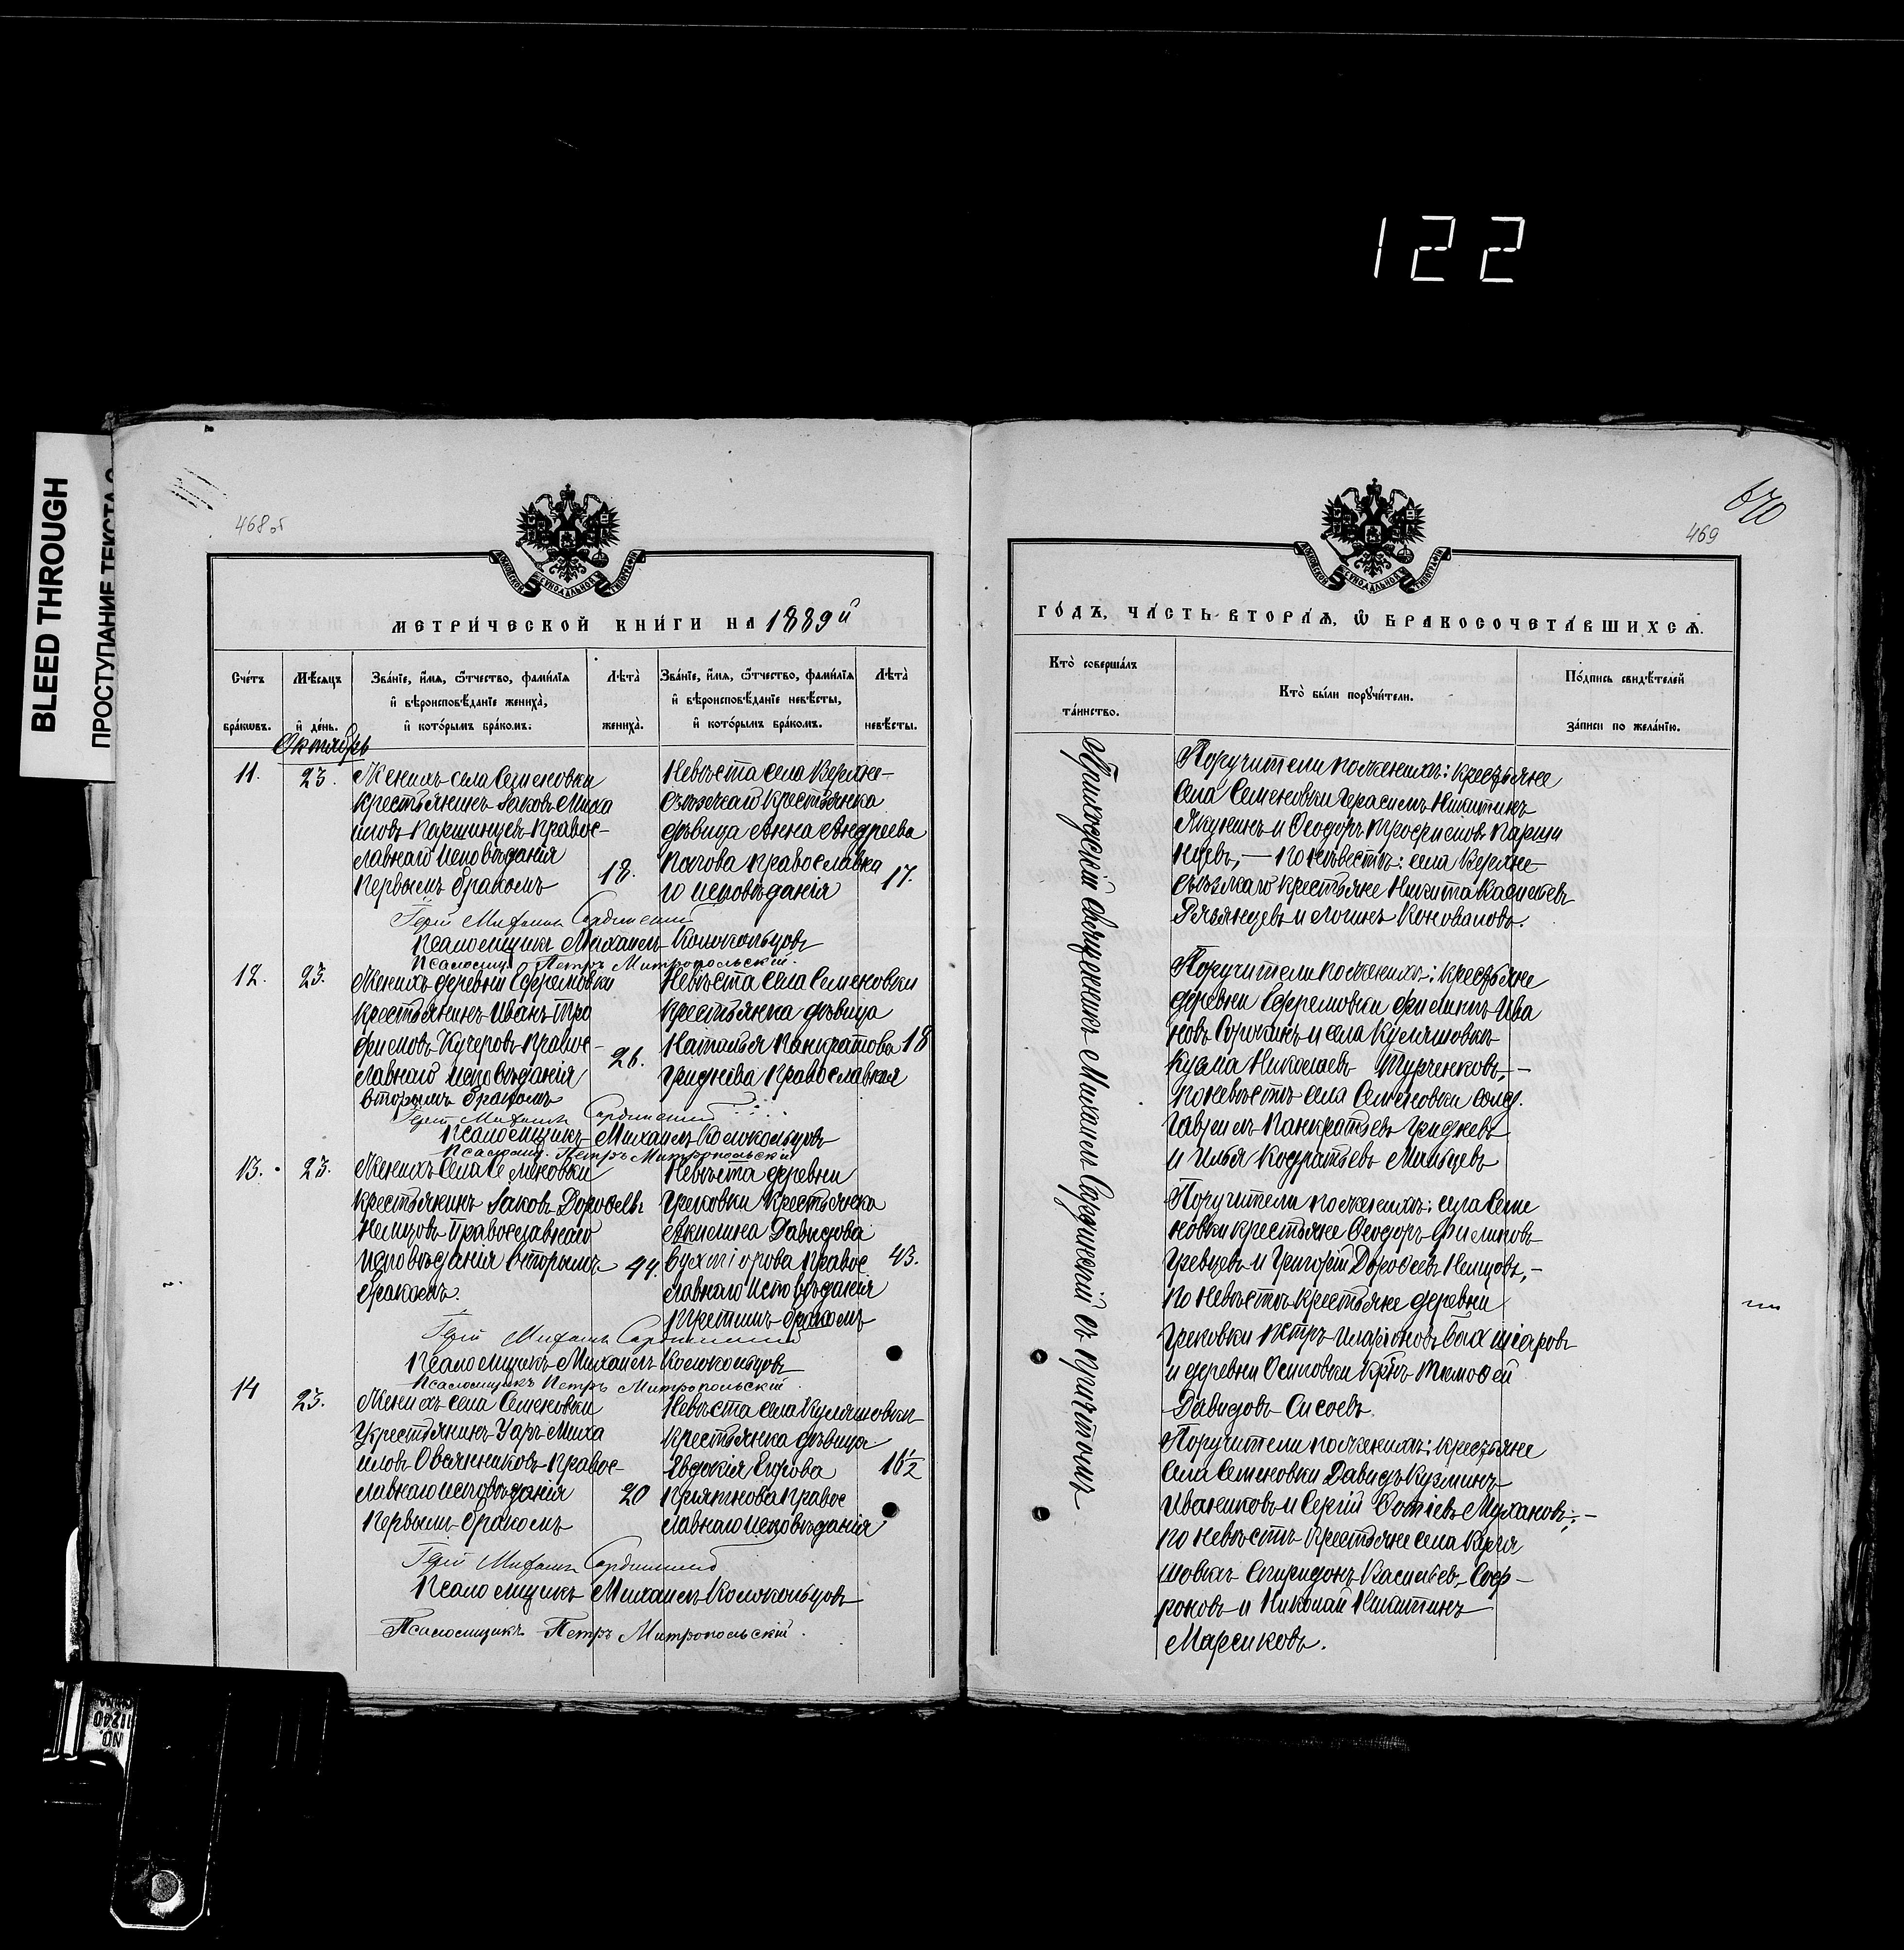 122
BLEED THROUGH
ПРОСТУПАНИЕ ТЕКСТА С
468 об
МЕТРИ́ЧЕСКОЙ КНИ́ГИ НА 1889й
Сче́тъ бра́кωвъ.
Мѣ́сяцъ и҆ де́нь.
Зва́нїе, и҆́мѧ, ѻ҆́тчество, фами́лїѧ и҆ вѣроисповѣ́данїе жениха̀, и҆ кото́рымъ бра́комъ.
Лѣта̀ жениха̀.
Зва́нїе, и҆́мѧ, ѻ҆́тчество, фами́лїѧ и҆ вѣроисповѣ́данїе невѣ́сты, и҆ кото́рымъ бра́комъ.
Лѣта̀ невѣ́сты.
Октябрь
11.
23.
Женихъ села Семеновки
крестьянинъ Іаковъ Миха
иловъ Паршинцевъ правос-
лавнаго исповѣданія
первымъ бракомъ
18.
Невѣста села Верхне-
съезжаго крестьянка
дѣвица Анна Андреева
православна
го исповѣданія
17.
Іерей Михаилъ
Псаломщикъ Михаилъ Колокольцовъ
Псаломщ. Петръ Митропольскій.
12.
23.
Женихъ деревни Ефремовки
крестьянинъ Иванъ Тро
фимовъ Кучеровъ правос-
лавнаго исповѣданія
вторымъ бракомъ
26.
Невѣста села Семеновки
крестьянка дѣвица
Наталья Панкратова
Гриднева православная
18
Іерей Михаилъ
Псаломщикъ Михаилъ Колокольцовъ
Псаломщ. Петръ Митропольскій
13.
23.
Женихъ села Семеновки
крестьянинъ Іаковъ Дорофеевъ
Немцовъ православнаго
исповѣданія вторымъ
бракомъ.
44.
Невѣста деревни
Грековки крестьянка
Акилина Давидова
правос
лавнаго исповѣданія
третьимъ бракомъ
43.
Іерей Михаилъ
Псаломщикъ Михаилъ Колокольцовъ
Псаломщикъ Петръ Митропольскій
14
23.
Женихъ села Семеновки
крестьянинъ Уаръ Миха
иловъ Овчинниковъ правос-
лавнаго исповѣданія
первымъ бракомъ
20
Невѣста села Куляшовки
крестьянка дѣвица
Евдокія Егорова
Пріятнова правос
лавнаго исповѣданія
16½
Іерей Михаилъ
Псаломщикъ Михаилъ Колокольцовъ
Псаломщикъ Петръ Митропольскій.
670
469
ГО́ДЪ, ЧА́СТЬ ВТОРА́Ѧ, Ѡ҆ БРАКОСОЧЕТА́ВШИХСѦ.
Кто̀ соверша́лъ та́инство.
Кто̀ бы́ли порꙋчи́тели.
По́дпись свидѣ́телей за́писи по жела́нїю.
Приходскій священникъ Михаилъ съ причтомъ
Поручители по женихѣ: крестьяне
села Семеновки Герасимъ Никитинъ
Якунинъ и Ѳеодоръ Трофимовъ Парши
нцевъ, — по невѣстѣ: села Верхне-
съезжаго крестьяне Никита Васильевъ
Рязянцевъ и Логинъ Коноваловъ.
Поручители по женихѣ: крестьяне
деревни Ефремовки Филипъ Ива
новъ Сорокинъ и села Куляшовки
Кузма Николаевъ Турченковъ, –
по невѣстѣ села Семеновки солд.
Гавріилъ Панкратьевъ Гридневъ
и Илья Кодратьевъ Мильцевъ
Поручители по женихѣ: села Семе
новки крестьяне Ѳеодоръ Филиповъ
Гревцевъ и Григорій Дорофеевъ Немцовъ, –
по невѣстѣ крестьяне деревни
Грековки Петръ Иларіоновъ
и деревни Осиповки крнъ Тимофей
Давидовъ Сисоевъ.
Поручители по женихѣ: крестьяне
села Семеновки Давидъ Кузминъ
Иванниковъ и Сергій Фотіевъ Мухановъ; –
по невѣстѣ крестьяне села Куля
шовки Спиридонъ Васильевъ Соф-
роновъ и Николай Никитинъ
Марсиковъ.